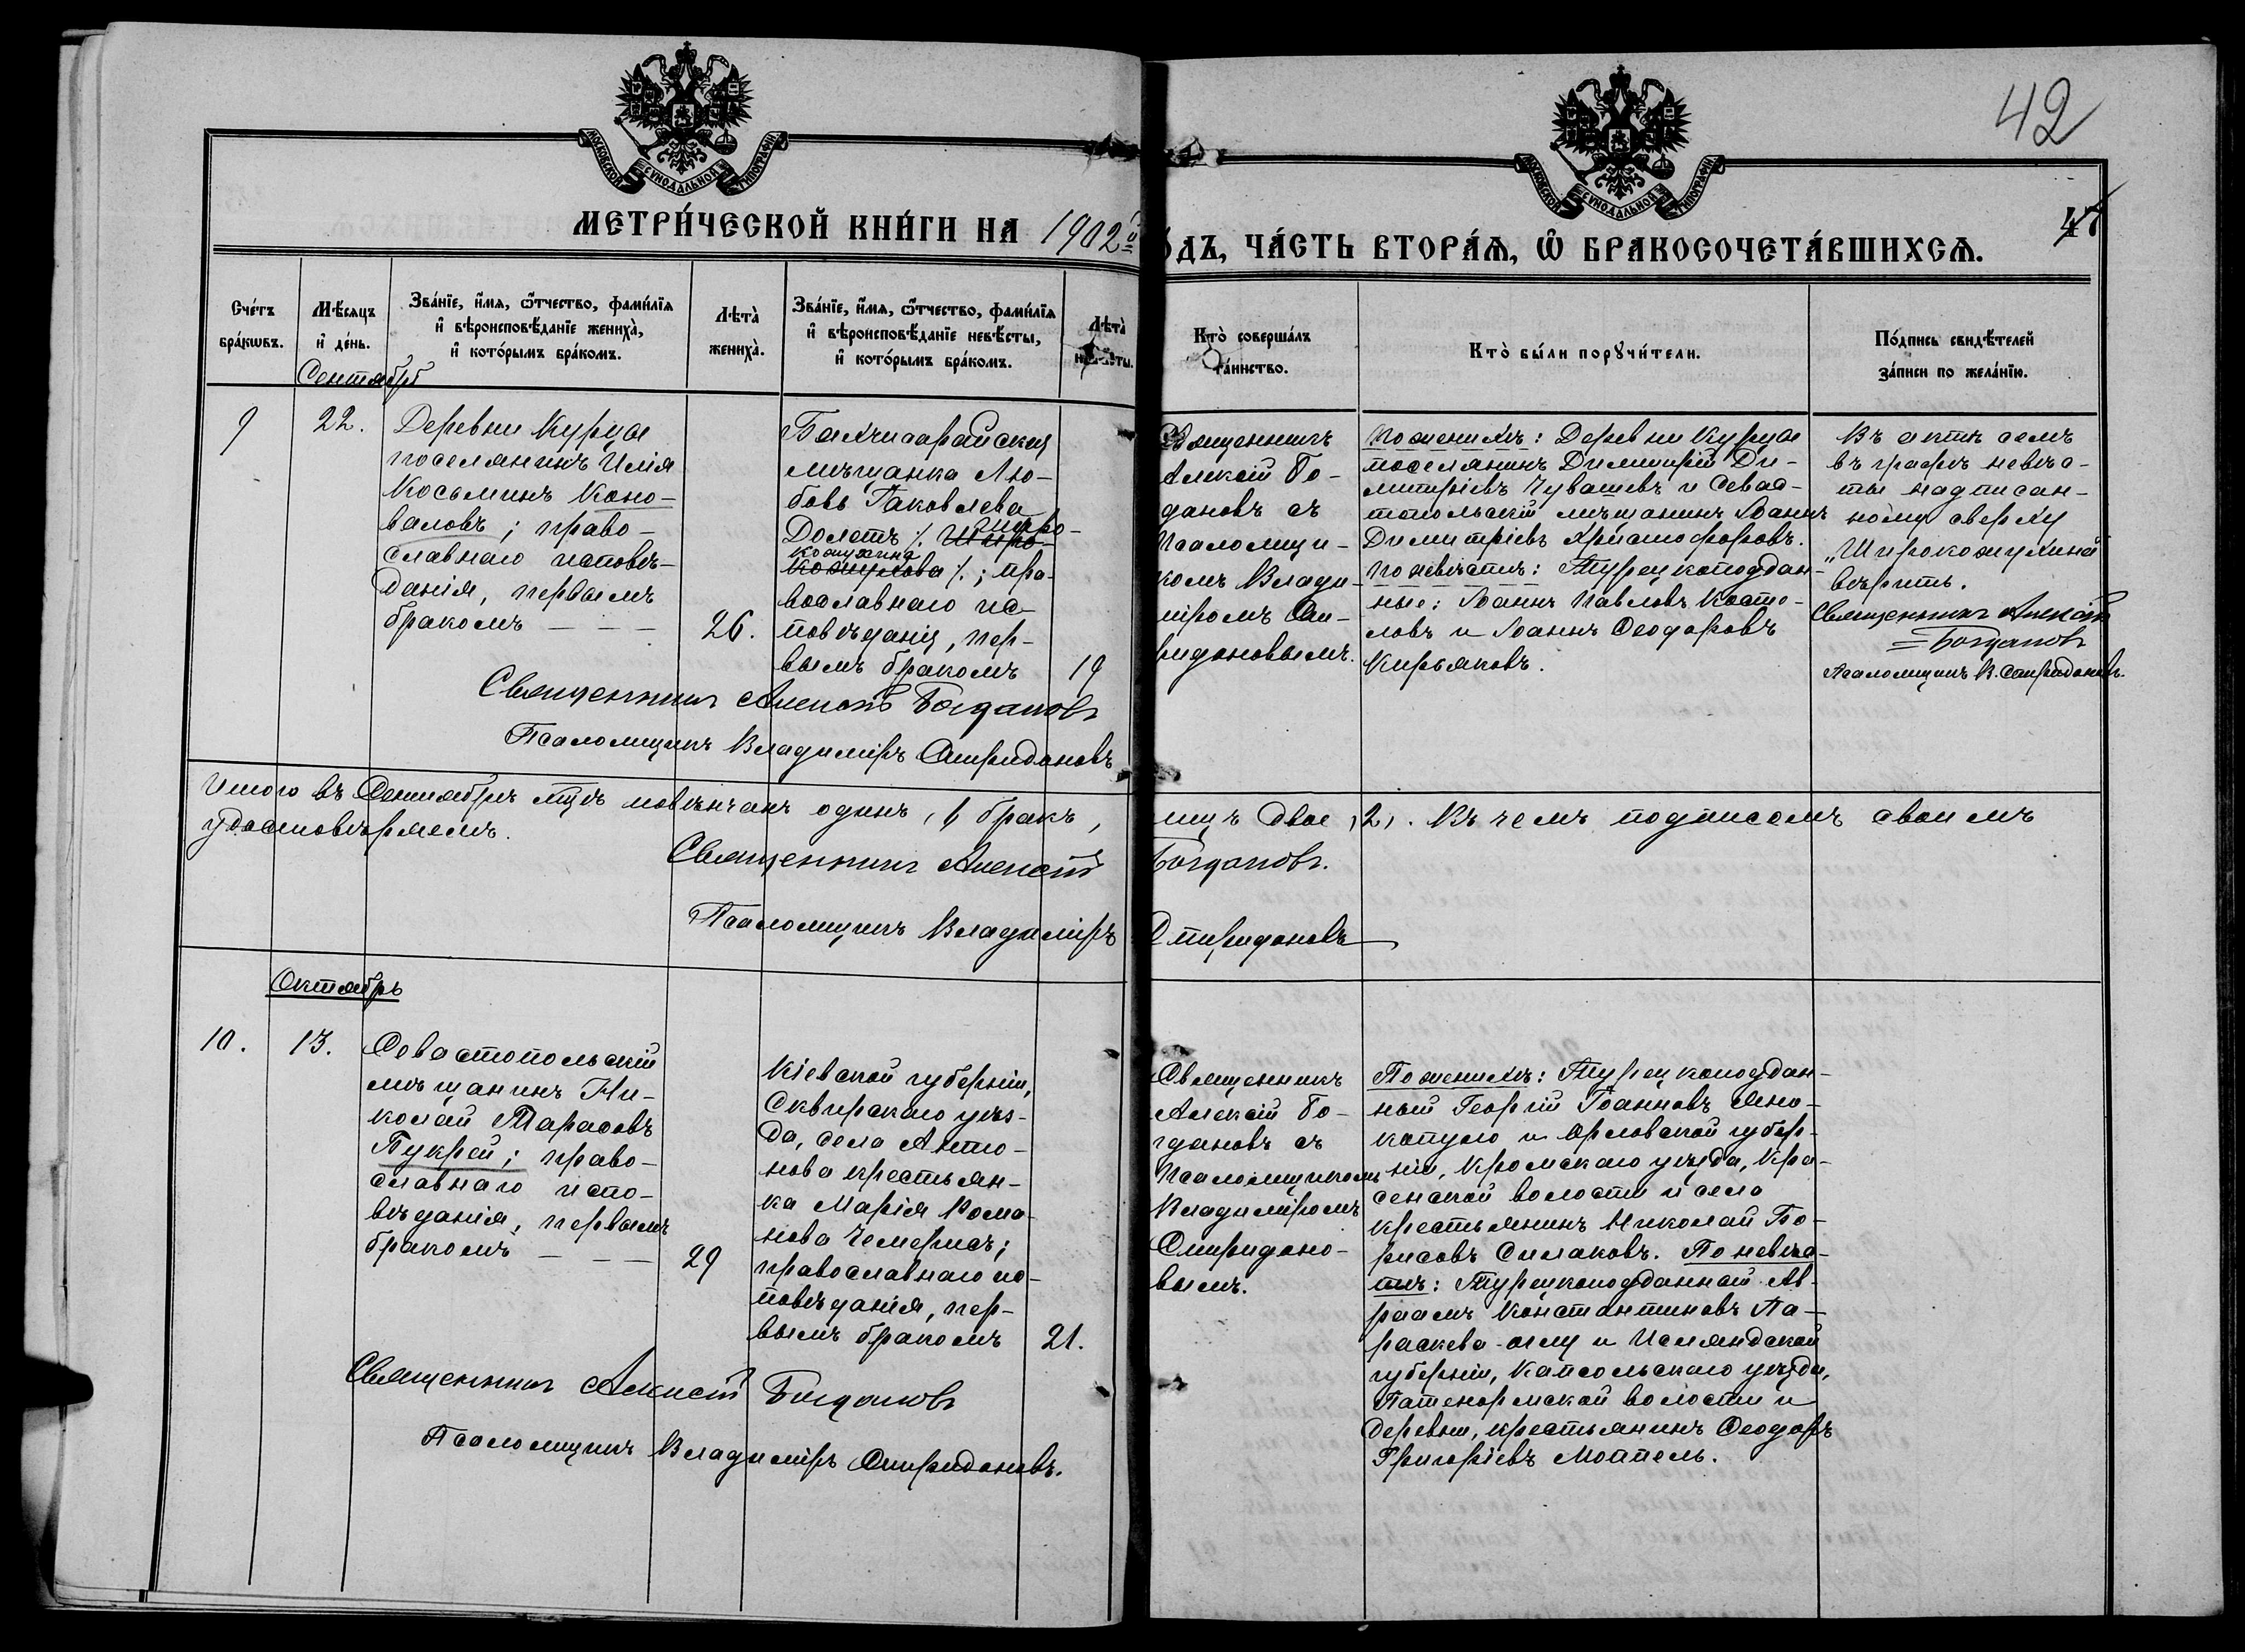 42
МОСКОВСКОЙ СѴНОДАЛЬНОЙ ТИПОГРАФІИ
МОСКОВСКОЙ СѴНОДАЛЬНОЙ ТИПОГРАФІИ
47
МЕТРИ́ЧЕСКОЙ КНИ́ГИ НА 1902й
О́ДЪ, ЧА́СТЬ ВТОРА́Ѧ, Ѡ҆ БРАКОСОЧЕТА́ВШИХСѦ.
Сче́тъ
бра́кѡвъ.
Мѣ́сяцъ
и҆ де́нь.
Зва́нїе, и҆́мѧ, ѻ҆́тчество, фами́лїѧ
и҆ вѣроисповѣ́данїе жениха̀,
и҆ кото́рымъ бра́комъ.
Лѣта̀
жениха̀.
Зва́нїе, и҆́мѧ, ѻ҆́тчество, фами́лїѧ
и҆ вѣроисповѣ́данїе невѣ́сты,
и҆ кото́рымъ бра́комъ.
Лѣта̀
невѣ́сты.
Кто̀ соверша́лъ
та́инство.
Кто̀ бы́ли порꙋчи́тели.
По́дпись свидѣ́телей
за́писи по жела́нїю.
Сентябрь
9
22.
Деревни Курци
поселянинъ Илія
Косьминъ Коно-
валовъ; право-
славнаго исповѣ-
данія, первымъ
бракомъ — — —
26.
Бахчисарайская
мѣщанка Лю-
бовь Іаковлева
Долетъ /. Широ-
Широ-
кожухина
кожухова /.; пра-
вославнаго ис-
повѣданія, пер-
вымъ бракомъ
19
Священникъ
Алексій Бо-
гдановъ съ
Псаломщи-
комъ Влади-
міромъ Спи-
ридоновымъ.
По женихѣ: Деревни Курци
поселянинъ Димитрій Ди-
митріевъ Чувашевъ и Севас-
топольскій мѣщанинъ Іоаннъ
Димитріевъ Христофоровъ.
По невѣстѣ: Турецкоподдан-
ные: Іоаннъ Павловъ Косто-
ловъ и Іоаннъ Ѳеодоровъ
Кирьяковъ.
Въ актѣ семъ
въ графѣ невѣс-
ты надписан-
ному сверху
„Широкожухина
вѣрить.
Священникъ Алексій
Богдановъ
Псаломщикъ В. Спиридоновъ.
Священникъ Алексій Богдановъ
Псаломщикъ Владиміръ Спиридоновъ
Итого въ Сентябрѣ мцѣ повѣнчанъ одинъ, 1, бракъ,
лицъ двое, 2,. Въ чемъ подписомъ своимъ
удостовѣряемъ.
Священникъ Алексій
Богдановъ.
Псаломщикъ Владиміръ
Спиридоновъ
Октябрь
10.
13.
Севастопольскій
мѣщанинъ Ни-
колай Тарасовъ
Пукрей; право-
славнаго испо-
вѣданія, первымъ
бракомъ — — —
29
Кіевской губерніи,
Сквирскаго уѣз-
да, села Анто-
нова крестьян-
ка Марія Рома-
нова Чемерисъ;
православнаго ис-
повѣданія, пер-
вымъ бракомъ
21.
Священникъ
Алексій Бо-
гдановъ съ
Псаломщикомъ
Владиміромъ
Спиридоно-
вымъ.
По женихѣ: Турецкоподдан-
ный Георгій Іоанновъ Яно-
копуло и Орловской губер-
ніи, Кромскаго уѣзда, Кра-
сенской волости и села
крестьянинъ Николай Бо-
рисовъ Силаковъ. По невѣс-
тѣ: Турецкоподданный Ав-
раамъ Константиновъ Па-
раскева-оглу и Ислян­дской
губерніи, Капсольскаго уѣзда,
Патенормской волости и
деревни, крестьянинъ Ѳеодоръ
Григоріевъ Моппель.
Священникъ Алексій Богдановъ
Псаломщикъ Владиміръ Спиридоновъ.